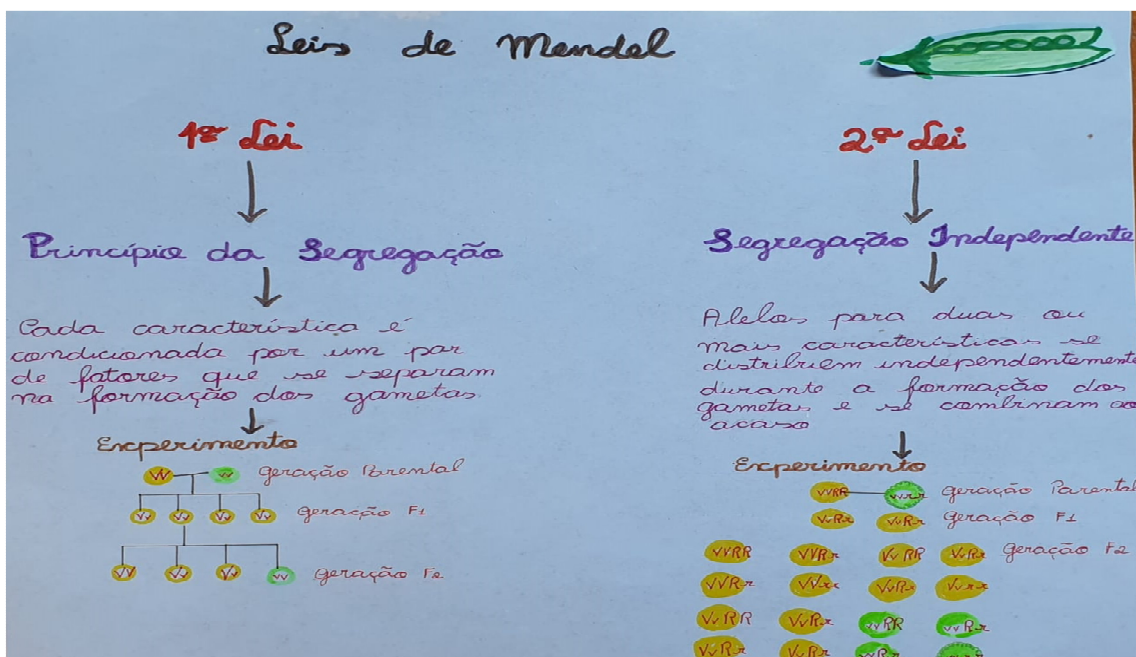 Leis de Mendel
1ª Lei
Princípio da Segregação
Cada característica é
condicionada por um par
de fatores que se separam
na formação dos gametas.
Experimento
VV vv Geração Parental
Vv Vv Vv Vv Geração F1
VV Vv Vv vv Geração F2
2ª Lei
Segregação Independente
Alelos para duas ou
mais características se
distribuem independentemente
durante a formação dos
gametas e se combinam ao
acaso
Experimento
VVRR vvrr Geração Parental
VvRr VvRr Geração F1
VVRR VVRr VvRR VvRr Geração F2
VVRr VVrr VvRr Vvrr
VvRR VvRr vvRR vvRr
VvRr vvRr